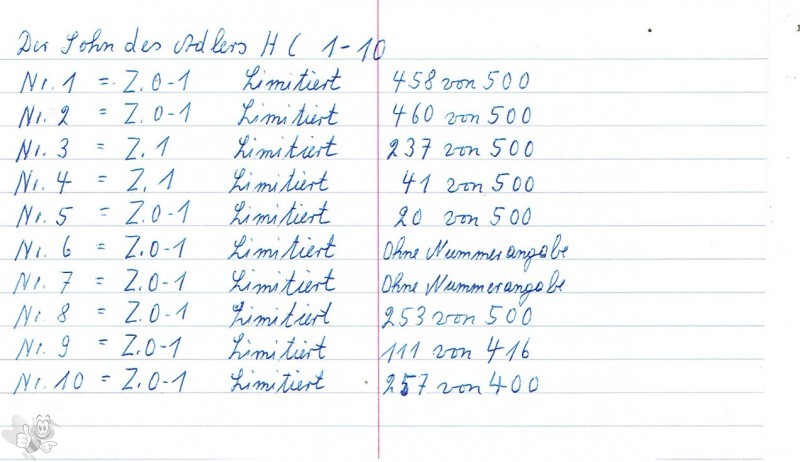 Der Sohn des Adlers HC 1-10
Nr. 1 = Z. 0-1 Limitiert 458 von 500
Nr. 2 = Z. 0-1 Limitiert 460 von 500
Nr. 3 = Z. 1 Limitiert 237 von 500
Nr. 4 = Z. 1 Limitiert 41 von 500
Nr. 5 = Z. 0-1 Limitiert 20 von 500
Nr. 6 = Z. 0-1 Limitiert Ohne Nummerangabe
Nr. 7 = Z. 0-1 Limitiert Ohne Nummerangabe
Nr. 8 = Z. 0-1 Limitiert 253 von 500
Nr. 9 = Z. 0-1 Limitiert 111 von 416
Nr. 10 = Z. 0-1 Limitiert 257 von 400